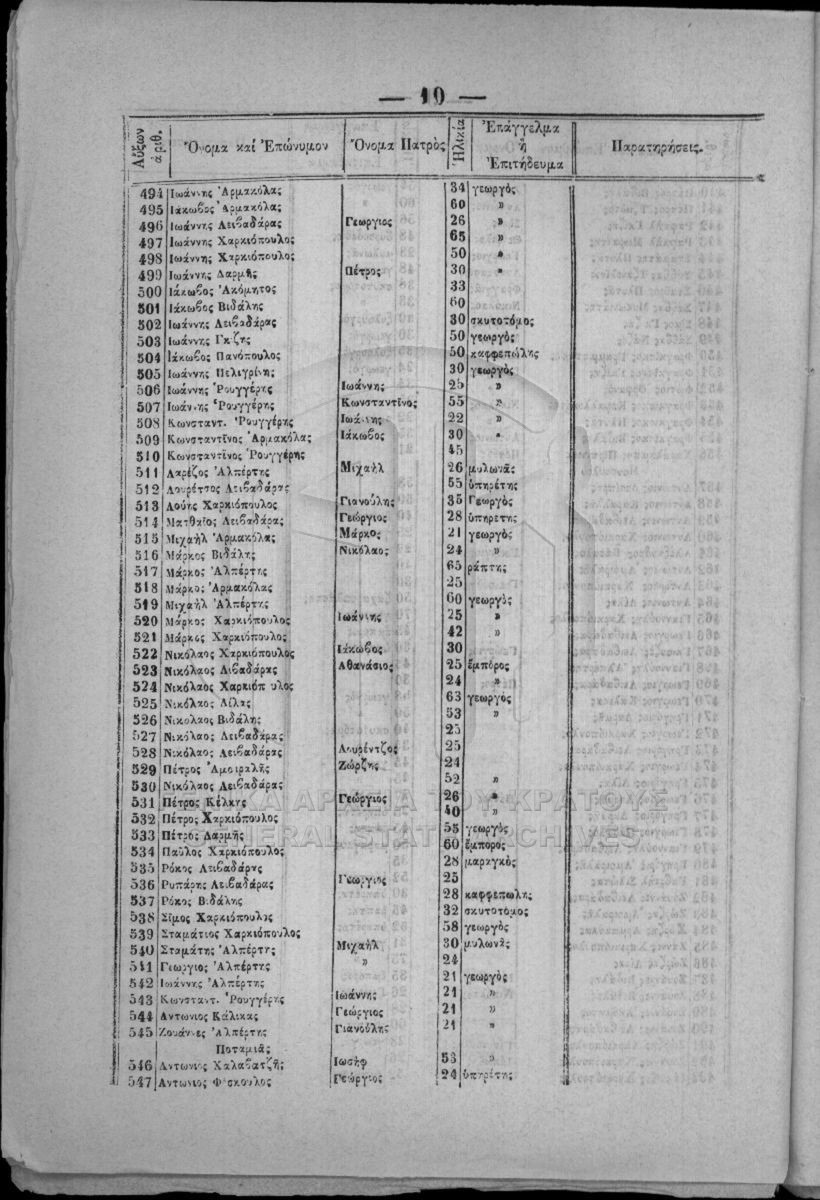 — 10 —
Αὔξων ἀριθ. Ὄνομα καί Ἐπώνυμον Ὄνομα Πατρὸς Ἡλικία Ἐπάγγελμα ἢ Ἐπιτήδευμα Παρατηρήσεις.
494 Ἰωάννης Ἀρμακόλας 34 γεωργὸς
495 Ἰάκωβος Ἀρμακόλας 60 »
496 Ἰωάννης Λειβαδάρας Γεωργιος 26 »
497 Ἰωάννης Χαρκιόπουλος 65 »
498 Ἰωάννης Χαρκιόπουλος 50 »
499 Ἰωάννης Δαρμῆς Πέτρος 30 »
500 Ἰάκωβος Ἀκόμητος 33
501 Ἰάκωβος Βιδάλης 60
502 Ἰωάννης Λειβαδάρας 30 σκυτοτόμος
503 Ἰωάννης 50 γεωργὸς
504 Ἰάκωβος Πανόπουλος 50 καφφεπώλης
505 Ἰωάννης Πελιγρίνης 30 γεωργὸς
506 Ἰωάννης Ῥουγγέρης Ἰωάννης 25 »
507 Ἰωάννης Ῥουγγέρης Κωνσταντῖνος 55 »
508 Κωνσταντ. Ῥουγγέρης Ἰωάννης 22 »
509 Κωνσταντῖνος Ἀρμακόλας Ἰάκωβος 30 »
510 Κωνσταντῖνος Ῥουγγέρης 45
511 Λαρέζος Ἀλπέρτης Μιχαὴλ 26 μυλωνᾶς
512 Λουρέτσος Λειβαδάρας 55 ὑπηρέτης
513 Λούης Χαρκιόπουλος Γιανούλης 35 Γεωργὸς
514 Ματθαῖος Λειβαδάρας Γεώργιος 28 ὑπηρετης
515 Μιχαὴλ Ἀρμακόλας Μάρκος 21 γεωργὸς
516 Μάρκος Βιδάλης Νικόλαος 24 »
517 Μάρκος Ἀλπέρτης 65 ράπτης
518 Μάρκος Ἀρμακόλας 25
519 Μιχαὴλ Ἀλπέρτης 60 γεωργὸς
520 Μάρκος Χαρκιόπουλος Ἰωάννης 25 »
521 Μάρκος Χαρκιόπουλος 42 »
522 Νικόλαος Χαρκιόπουλος Ἰάκωβος 30
523 Νικόλαος Λιβαδάρας Ἀθανάσιος 25 ἔμπορος
524 Νικόλαος Χαρκιόπ υλος 24 »
525 Νικόλαος Λίλας 63 γεωργὸς
526 Νικολαος Βιδάλης 53 »
527 Νικόλαος Λειβαδάρας 25
528 Νικόλαος Λειβαδάρας Λουρέντζος 25
529 Πέτρος Ἀμοιραλῆς Ζώρζης 24
530 Νικόλαος Λειβαδάρας 52 »
531 Πέτρος Κέλκης Γεώργιος 26 »
532 Πέτρος Χαρκιόπουλος 40 »
533 Πέτρος Δαρμῆς 55 γεωργὸς
534 Παῦλος Χαρκιόπουλος 60 ἔμπορος
535 Ρόκος Λειβαδάρης 28 μαραγκὸς
536 Ρυπάρης Λειβαδάρας Γεωργιος 25
537 Ρόκος Βιδάλης 28 καφφεπωλης
538 Σῖμος Χαρκιόπουλος 32 σκυτοτόμος
539 Σταμάτιος Χαρκιόπουλος 58 γεωργὸς
540 Σταμάτης Ἀλπέρτης Μιχαὴλ 30 μυλωνᾶς
541 Γεωργιος Ἀλπέρτης » 24
542 Ἰωάννης Ἀλπέρτης 21 γεωργὸς
543 Κωνσταντ. Ῥουγγέρης Ἰωάννης 21 »
544 Ἀντωνιος Κάλικας Γεώργιος 21 »
545 Ζουάννες Ἀλπέρτης Γιανούλης 21 »
Ποταμιᾶς
546 Ἀντωνιος Χαλαβατζῆς Ἰωσὴφ 53 »
547 Ἀντωνιος Φ σκουλος Γεώργιος 24 ὑπηρέτης
ΓΕΝΙΚΑ ΑΡΧΕΙΑ ΤΟΥ ΚΡΑΤΟΥΣ
GENERAL STATE ARCHIVES